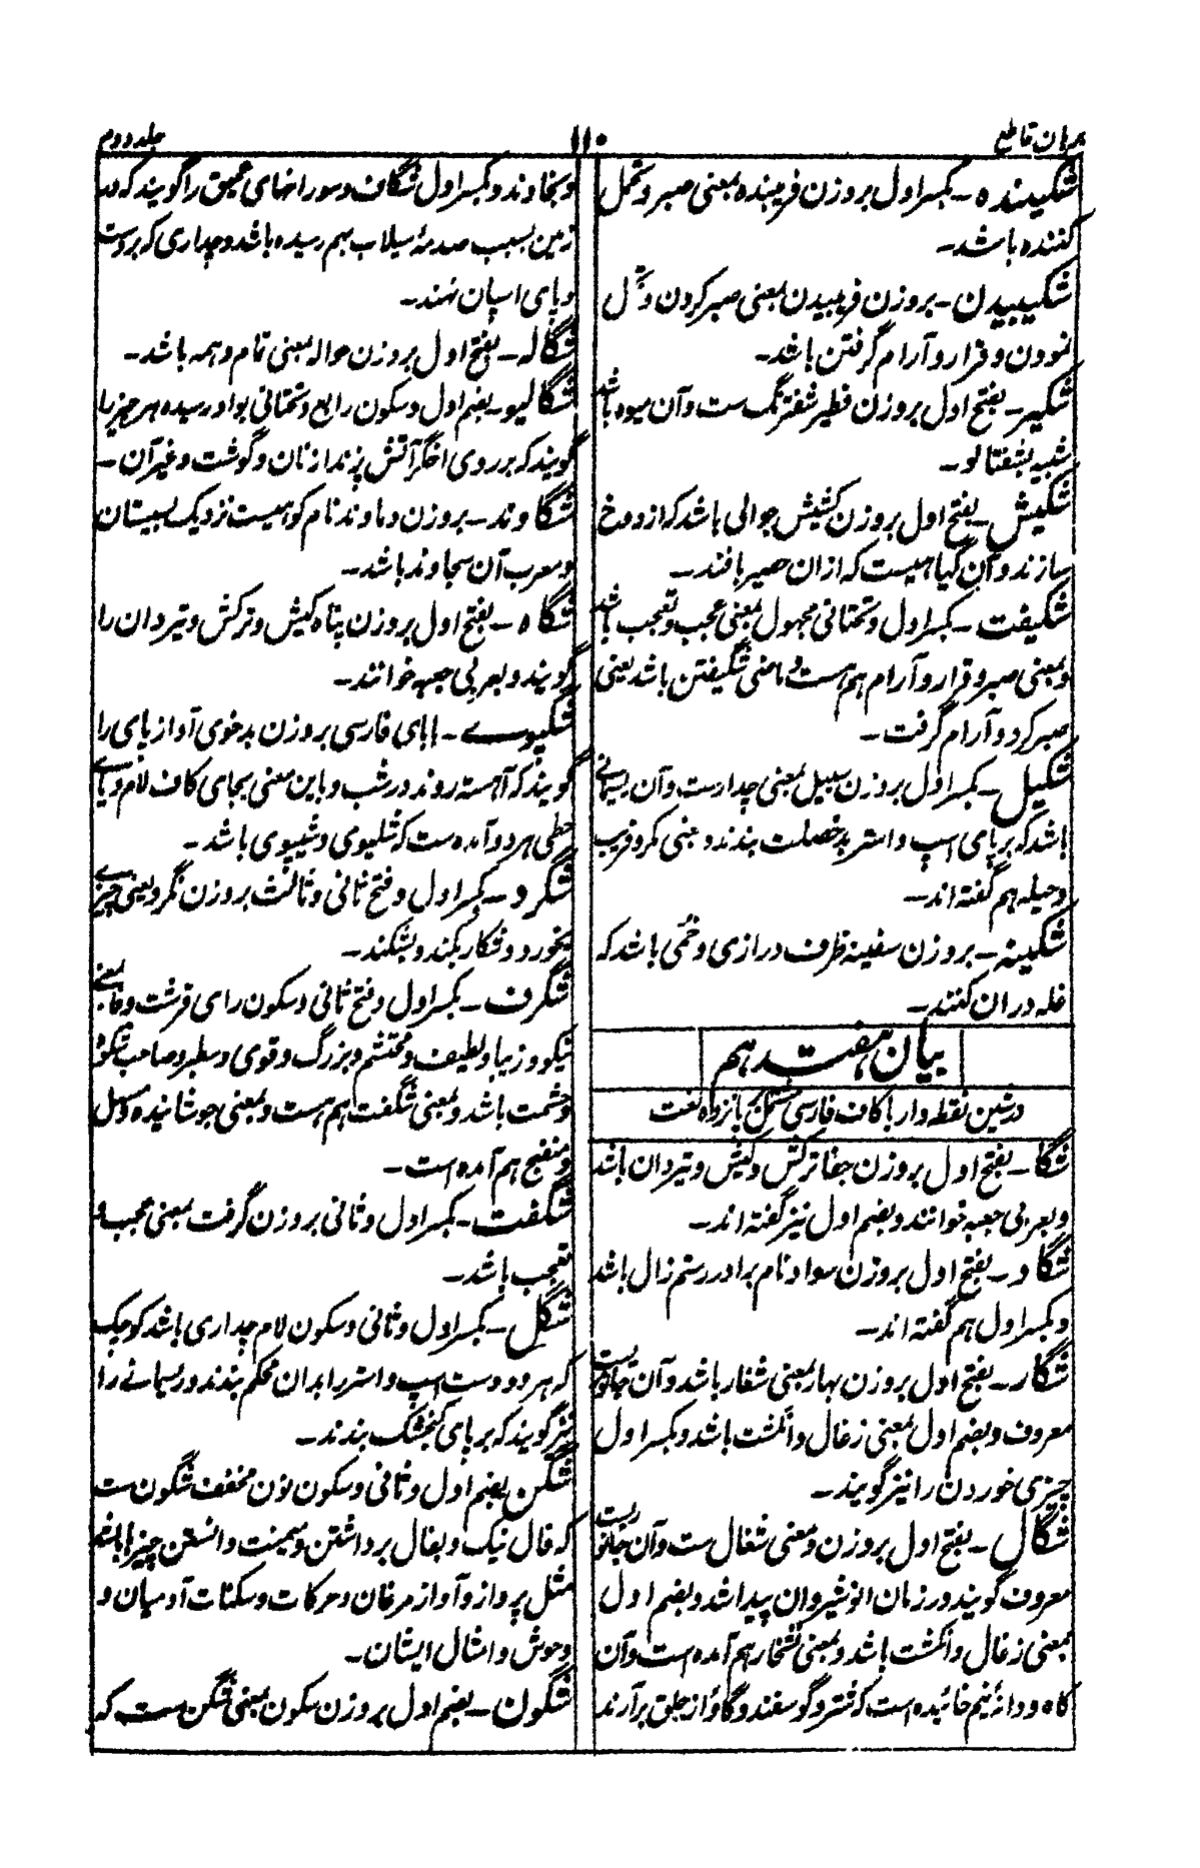 برهان قاطع
۱۱۰
جلد دوم
شکیبنده - بکسر اول بروزن فریبنده بمعنی صبر و تحمل
کننده باشد -
شکیبیدن - بروزن فریبیدن بمعنی صبر کردن و تحمل
نمودن و قرار و آرام گرفتن باشد -
شکیر - بفتح اول بروزن فطیر شفترنگ ست و آن میوه باشد
شبیه بشفتالو -
شکیش - بفتح اول بروزن کشیش جوالی باشد که از دوخ
سازند و آن گیاهیست که ازان حصیر بافند -
شکیفت - بکسر اول و تحتانی مجهول بمعنی عجب و تعجب باشد
و بمعنی صبر و قرار و آرام هم هست و ماضی شکیفتن باشد یعنی
صبر کرد و آرام گرفت -
شکیل - بکسر اول بروزن سبیل بمعنی چدارست و آن ریسمانے
باشد که بر پای اسپ و استر بدخصلت بندند و بمعنی مکر و فریب
و حیله هم گفته اند -
شکینه - بروزن سفینه ظرف درازی و خمی باشد که
غله دران کنند -
بیان هفت دهم
در شین نقطه دار با کاف فارسی مشتمل بر پانزده لغت
شگا - بفتح اول بروزن جفا ترکش و کیش و تیردان باشد
و بعربی جعبه خوانند و بضم اول نیز گفته اند -
شگاد - بفتح اول بروزن سواد نام برادر رستم زال باشد
و بکسر اول هم گفته اند -
شگار - بفتح اول بروزن بهار بمعنی شغار باشد و آن جانوریست
معروف و بضم اول بمعنی زغال و انگشت باشد و بکسر اول
چیزی خوردن را نیز گویند -
شگال - بفتح اول بروزن و معنی شغال ست و آن جانوریست
معروف گویند در زمان انوشیروان پیدا شد و بضم اول
بمعنی زغال و انگشت باشد و بمعنی نشخار هم آمده است و آن
کاه و دانه نیم خائیده است که شتر و گوسفند و گاو از حلق برآرند
و بخاوند و بکسر اول شگاف و سوراخهای عمیق را گویند که در
زمین بسبب صدمه سیلاب بهم رسیده باشد و چداری که بر دست
و پای اسپان نهند -
شگاله - بفتح اول بروزن حواله بمعنی تمام و همه باشد -
شگالیو - بضم اول و سکون رابع و تحتانی بواو رسیده هر چیز را
گویند که بر روی اخگر آتش پزند از نان و گوشت و غیر آن -
شگاوند - بروزن دماوند نام کوهیست نزدیک بسیستان
و معرب آن سجاوند باشد -
شگاه - بفتح اول بروزن پناه کیش و ترکش و تیردان را
گویند و بعربی جعبه خوانند -
شگپوے - ابای فارسی بروزن بدخوی آواز پای را
گویند که آهسته روند در شب و باین معنی بجای کاف لام و یاے
حطی هر دو آمده ست که شلپوی و شیپوی باشد -
شگرد - بکسر اول و فتح ثانی و ثالث بروزن نگرد یعنی چیزے
بخورد و شکار بکند و بشکند -
شگرف - بکسر اول و فتح ثانی و سکون رای قرشت و فا بمعنے
نیکو و زیبا و لطیف و محتشم و بزرگ و قوی و سطبر و صاحب شکوه
و حشمت باشد و بمعنی شگفت هم هست و بمعنی جوشانیده و مسهل
و منضج هم آمده است -
شگفت - بکسر اول و ثانی بروزن گرفت بمعنی عجب و
تعجب باشد -
شگل - بکسر اول و ثانی و سکون لام چداری باشد کوچک
که هر دو دست اسپ و استر را بدان محکم بندند و ریسمانے را
نیز گویند که بر پای گنجشک بندند -
شگن بضم اول و ثانی و سکون نون مخفف شگون ست
که فال نیک و بفال برداشتن و میمنت دانستن چیزها باشد
مثل پرواز و آواز مرغان و حرکات و سکنات آدمیان و
وحوش و امثال ایشان -
شگون - بضم اول بروزن سکون بمعنی شگن ست که